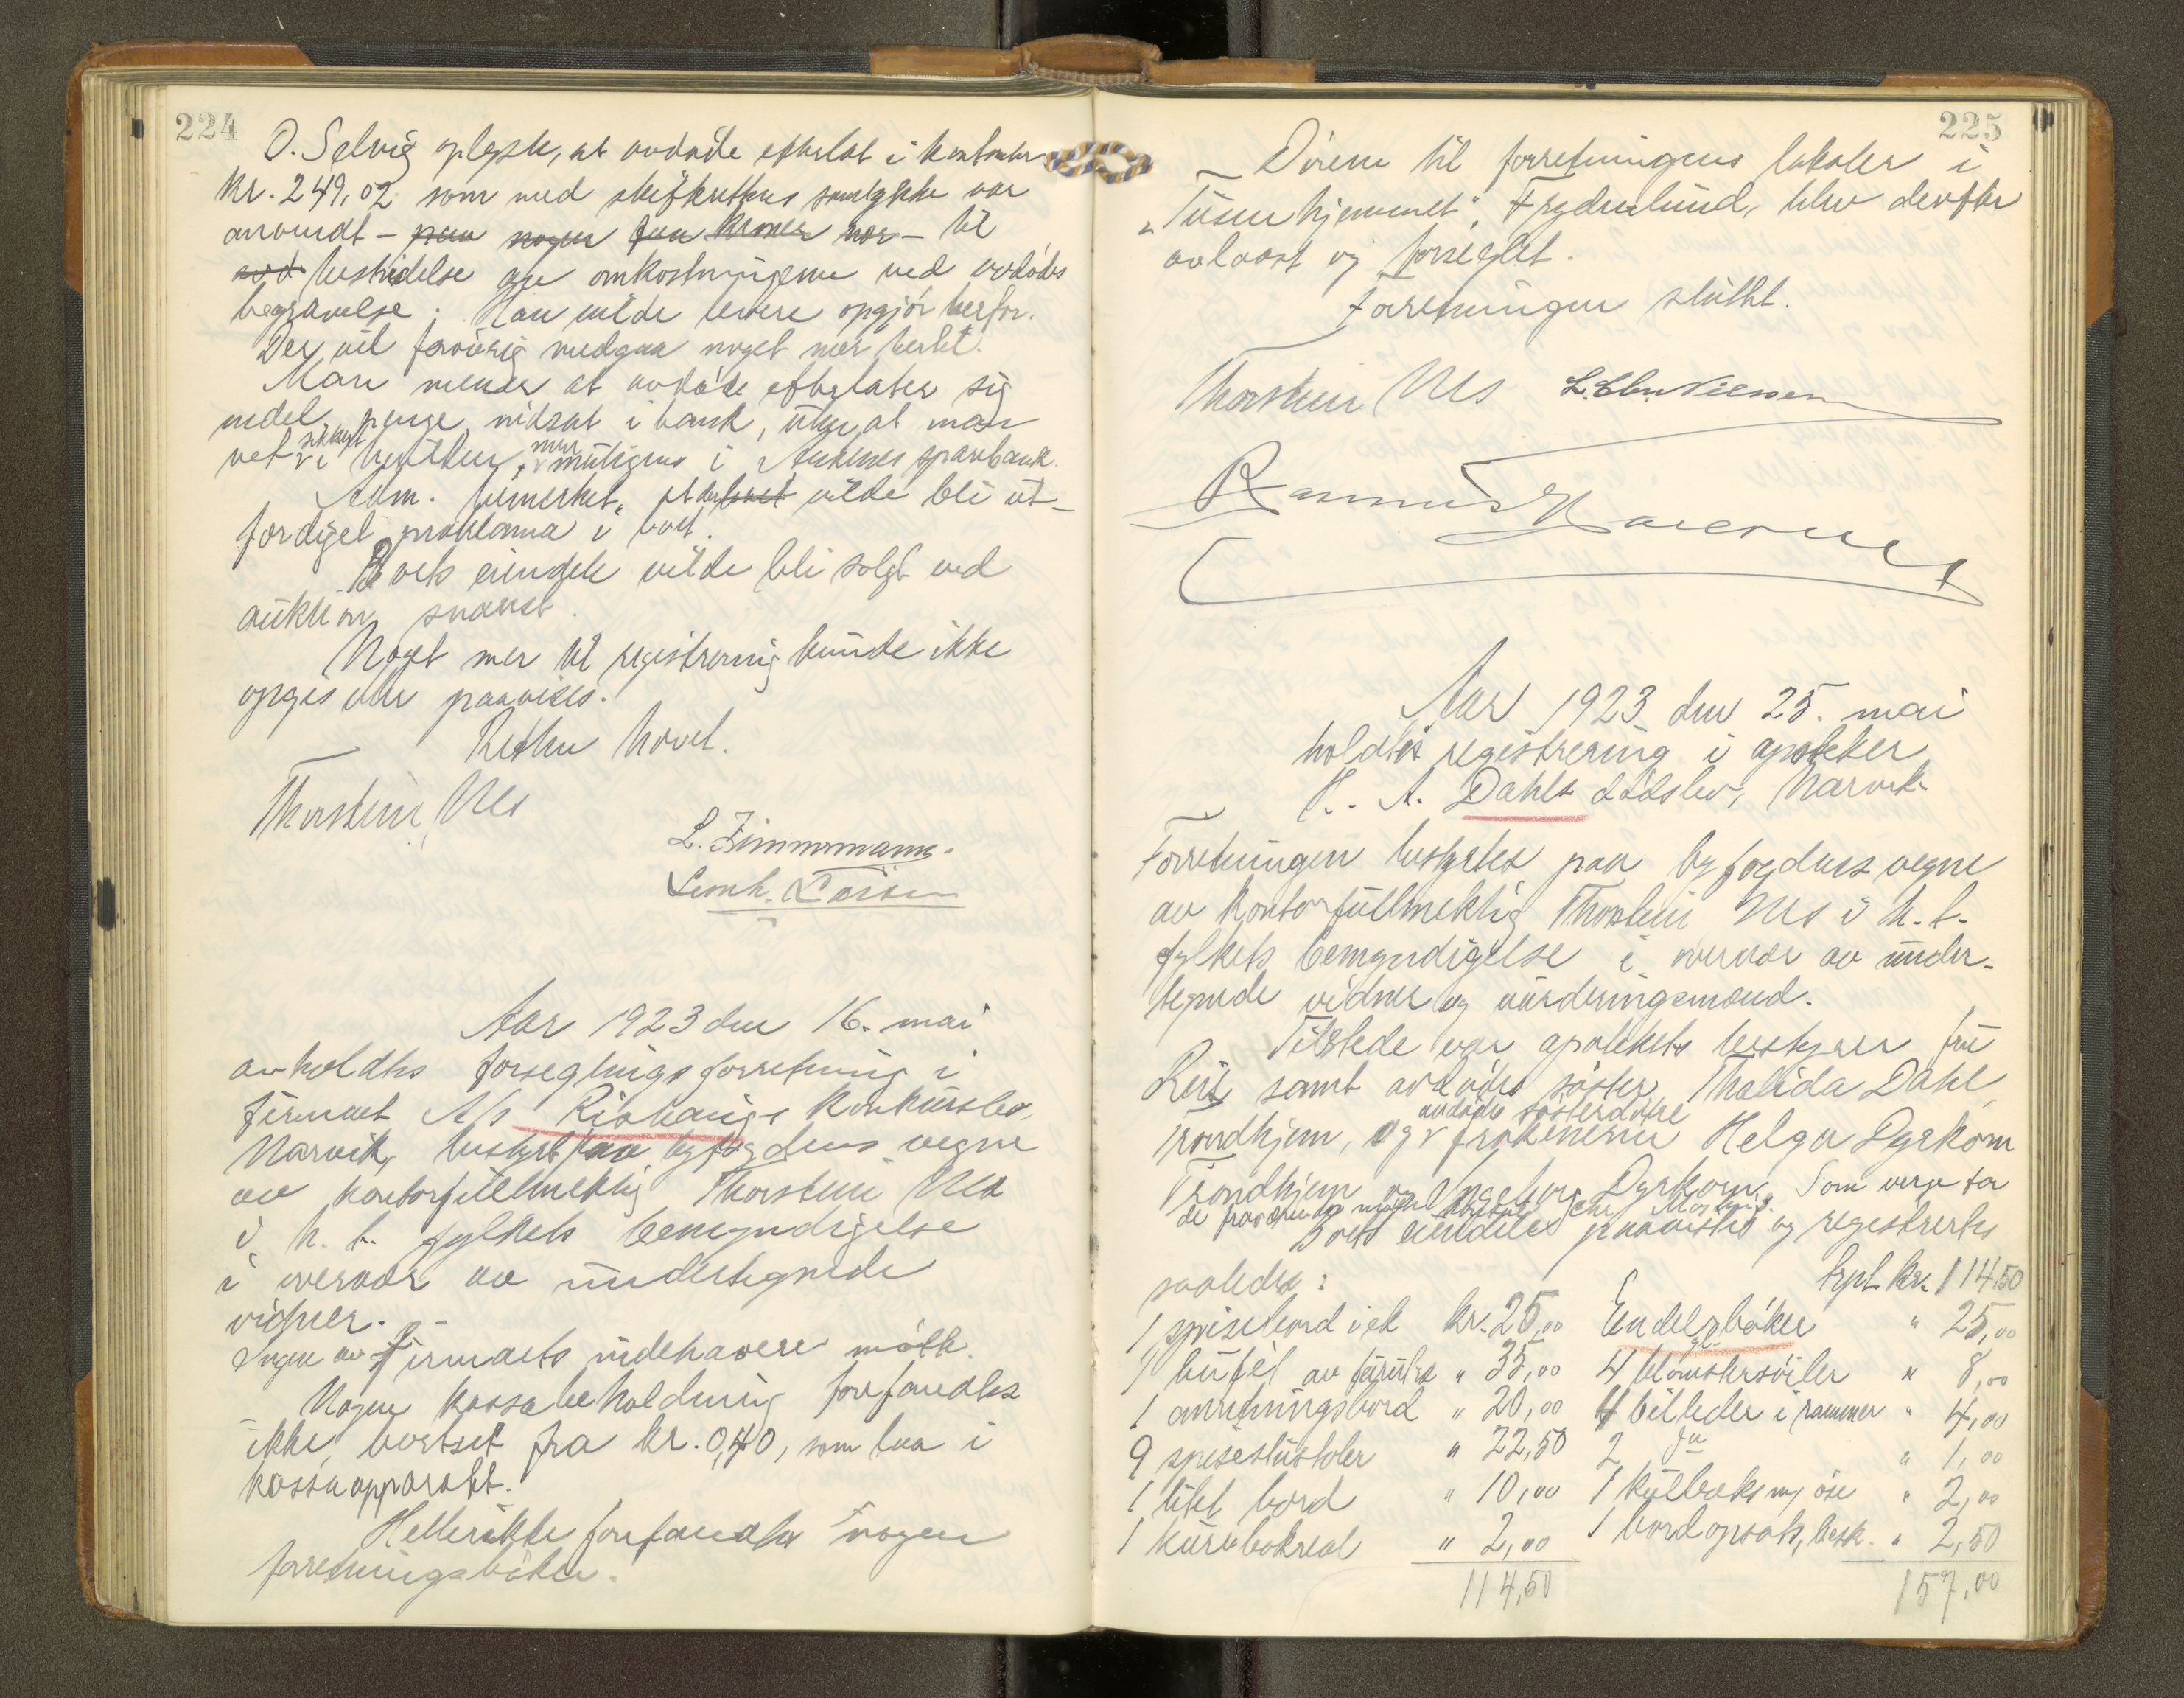 224
O. Selvig oplyste, at avdøde efterlot i kontanter
kr. 249,02 som med skifterettens samtykke var
anvendt - paa nogen faa kroner nær - til
ved bestridelse av omkostningene ved avdødes
begravelse. Han vilde levere opgjør herfor.
Der vil forøvrig medgaa noget mer hertil.
Man mener at avdøde efterlater sig
endel penge indsat i bank, uten at man
vet sikkert i hvilken, men muligens i Ankenes sparebank.
Adm. bemerket, at der vilde bli ut-
ferdiget proklama i boet.
Boets eiendele vilde bli solgt ved
auktion snarest.
Noget mer til registrering kunde ikke
opgis eller paavises.
Retten hævet.
Thorstein Nes
L. Zimmermann.
Aar 1923 den 16. mai
avholdtes forseglingsforretning i
firmaet A/s konkursbo,
Narvik, bestyrt paa byfogdens vegne
av kontorfullmektig Thorstein Nes
i h. t. fylkets bemyndigelse
i overvær av undertegnede
vidner.
Ingen av firmaets indehavere møtte.
Nogen kassabeholdning forfandtes
ikke, bortset fra kr. 0,40, som laa i
kassaapparatet.
Heller ikke forfandtes nogen
forretningsbøker.
225
Dørene til forretningens lokaler i
Frydenlund, blev derefter
avlaast og forseglet.
Forretningen sluttet.
Thorstein Nes
Rasmus
Aar 1923 den 25. mai
holdtes registrering i apoteker
A. Dahls dødsbo, Narvik.
Forretningen bestyrtes paa byfogdens vegne
av kontorfullmektig Thorstein Nes i h. t.
fylkets bemyndigelse i overvær av under-
tegnede vidner og vurderingsmænd.
Tilstede var apotekets bestyrer fru
samt avdødes søster Thalida Dahl,
Trondhjem, og avdødes søsterdøtre frøknerne Helga Dyrkorn
Trondhjem og Ingeborg Dyrkorn. Som verge for
de fraværende møtte
Boets eiendeler paavistes og registrertes
saaledes:
1 spisebord i ek kr. 25,00
1 bufet av furutræ " 35,00
1 anretningsbord " 20,00
9 spisestustoler " 22,50
1 litet bord " 10,00
1 kurvbokreol " 2,00
114,50
Trpt. kr. 114,50
Endel bøker " 25,00
4 blomstersøiler " 8,00
4 billeder i rammer " 4,00
2 do " 1,00
1 kulboks m/ øse " 2,00
1 bordopsats, besk. " 2,50
157,00